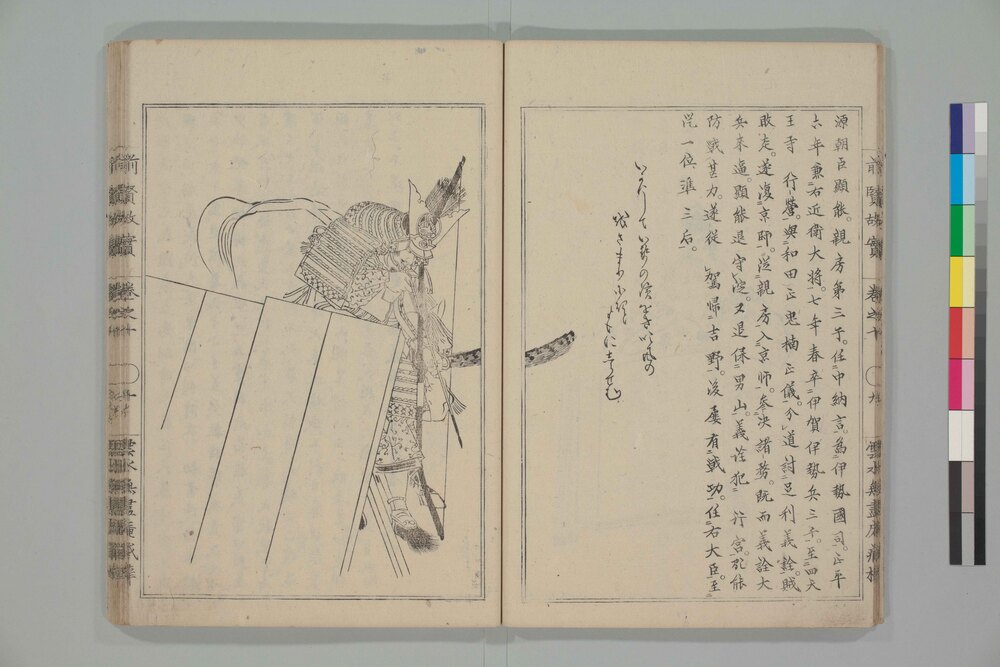 源朝臣顯能。親房第三子。任中納言。為伊勢國司。正平
六年兼右近衛大将。七年春卒伊賀伊勢兵三千。至四天
王寺　行營。與和田正忠楠正儀。分道討足利義詮。賊
敗走。遂復京師。從親房入京師。參决諸務。既而義詮大
兵来逼。顯能退守淀。又退保男山。義詮犯　行宮。顯能
防戦甚力。遂從　駕歸吉野。後屡有戦功。任右大臣。至
從一位準三后。
いかにして伊勢の濱をき
前賢故實　巻之十　〇　九　雲水無盡庵藏板
前賢故實　巻之十　〇